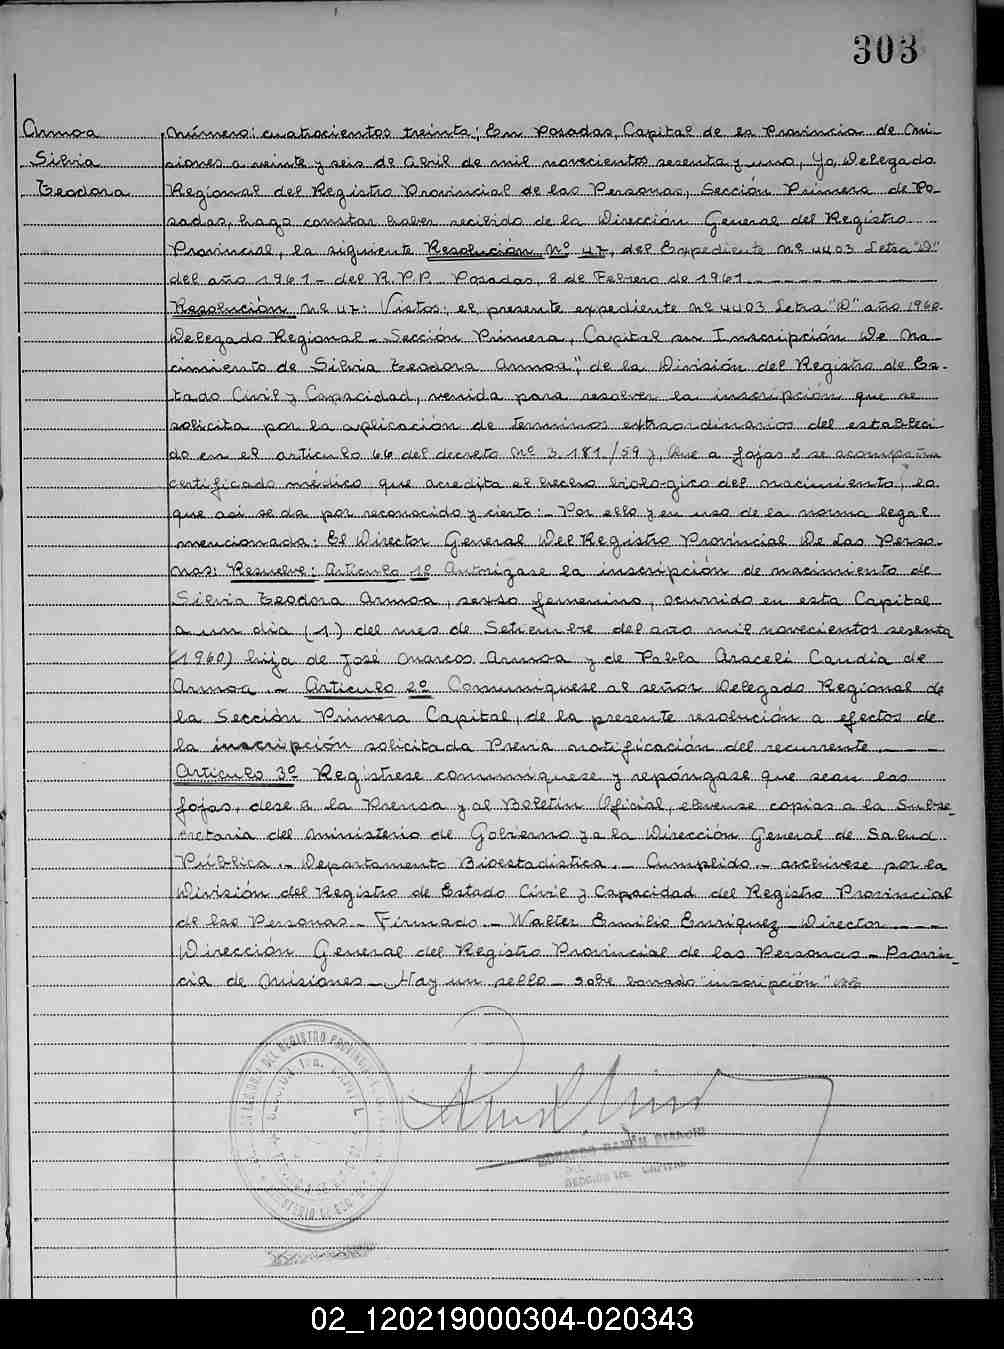 303
Armoa
Silvia
Teodora
Número: cuatrocientos treinta; En Posadas, Capital de la Provincia de Mi-
siones a veinte y seis de Abril de mil novecientos sesenta y uno, Yo, Delegado
Regional del Registro Provincial de las Personas, Sección Primera de Po-
sadas, hago constar haber recibido de la Dirección General del Registro
Provincial, la siguiente Resolución Nº 47, del Expediente Nº 4403 Letra "D"
del año 1961 - del R.P.P. Posadas, 8 de Febrero de 1961
Resolución Nº 47: Vistos: el presente expediente Nº 4403 Letra "D" año 1960-
Delegado Regional - Sección Primera, Capital su Inscripción De Na-
cimiento de Silvia Teodora Armoa", de la División del Registro de Es-
tado Civil y Capacidad, venida para resolver la inscripción que se
solicita por la aplicación de terminos extraordinarios del estableci
do en el articulo 66 del decreto Nº 3.181/59 y, Que a fojas 2 se acompaña
certificado médico que acredita el hecho biologico del nacimiento, lo
que asi se da por reconocido y cierto: - Por ello y en uso de la norma legal
mencionada: El Director General Del Registro Provincial De Las Perso-
nas: Resuelve: Articulo 1º Autorizase la inscripción de nacimiento de
Silvia Teodora Armoa, sexso femenino, ocurrido en esta Capital
a un dia (1) del mes de Setiembre del año mil novecientos sesenta
(1960) hija de José Marcos Armoa y de Pabla Araceli Candia de
Armoa. - Articulo 2º Comuniquese al señor Delegado Regional de
la Sección Primera Capital, de la presente resolución a efectos de
la inscripción solicitada Previa notificación del recurrente.
Articulo 3º Registrese comuniquese y repóngase que sean las
fojas, dese a la Prensa y al Boletin Oficial, elevense copias a la Subse-
cretaria del Ministerio de Gobierno y a la Dirección General de Salud
Pública. - Departamento Bioestadistica. - Cumplido - archivese por la
División del Registro de Estado Civil y Capacidad del Registro Provincial
de las Personas - Firmado - Walter Emilio Enriquez Director
Dirección General del Registro Provincial de las Personas - Provin-
cia de Misiones - Hay un sello - sobre borrado "inscripción" Vale
SECCION 1ra. CAPITAL
02_120219000304-020343